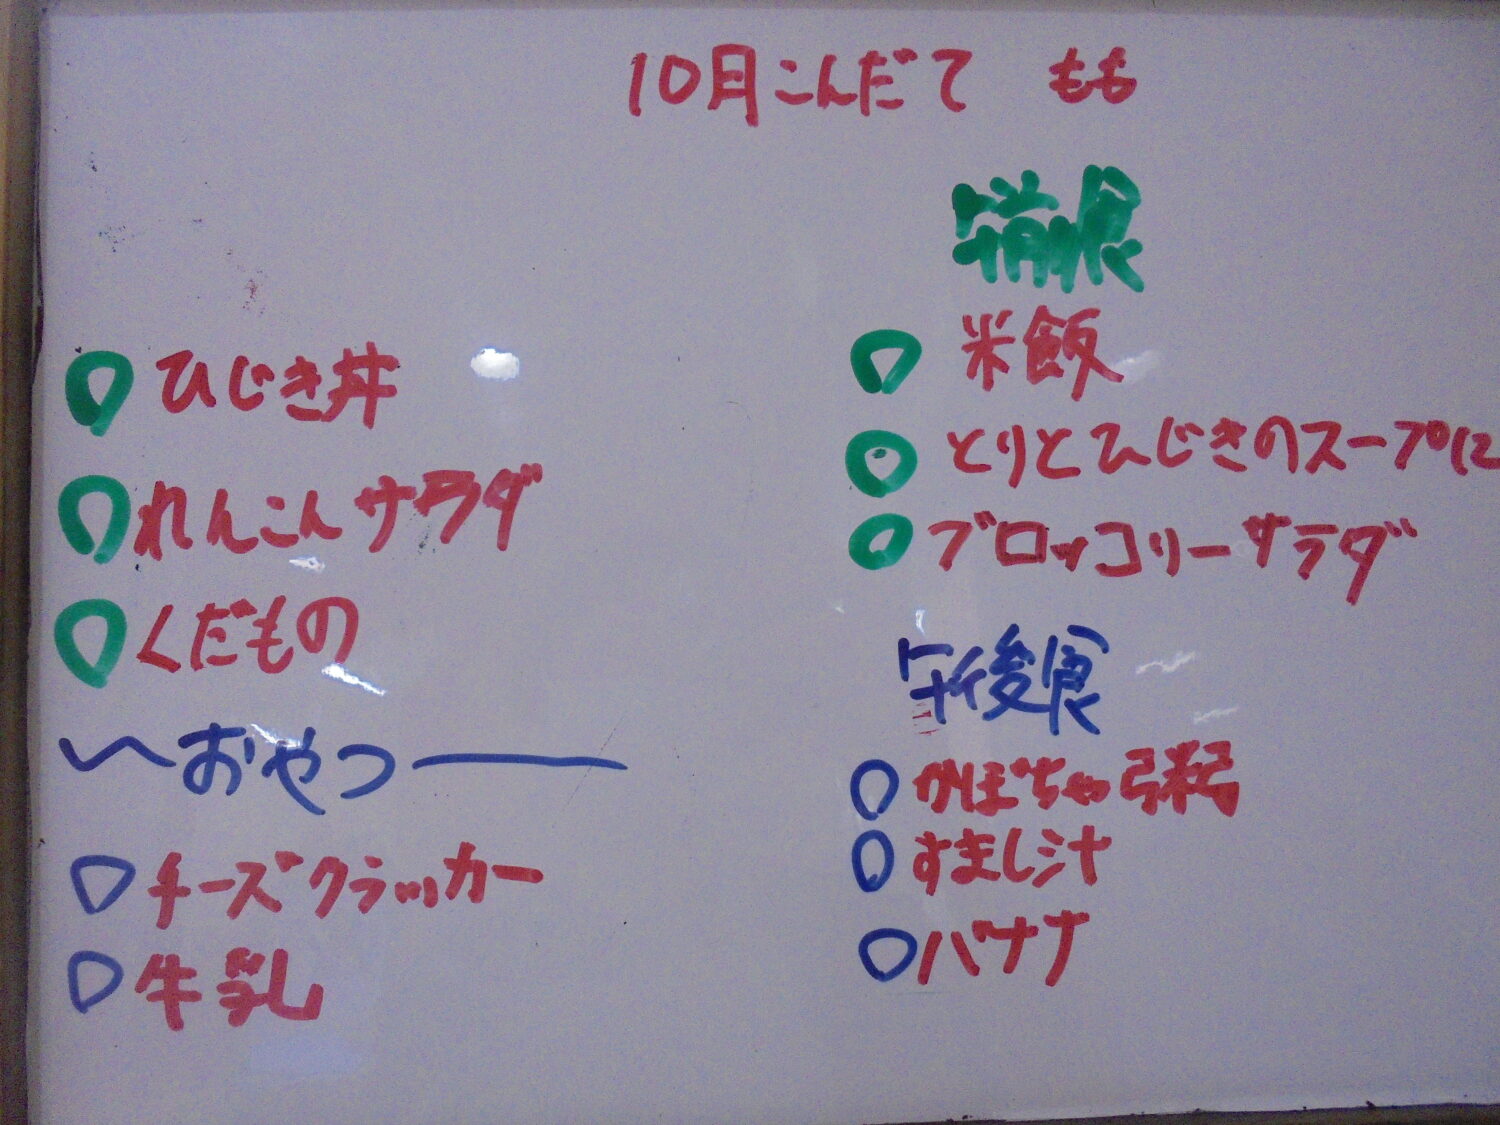 10月こんだて もも
ひじき丼
れんこんサラダ
くだもの
おやつ
チーズクラッカー
牛乳
午前食
米飯
とりとひじきのスープに
ブロッコリーサラダ
午後食
かぼちゃ粥
すまし汁
バナナ